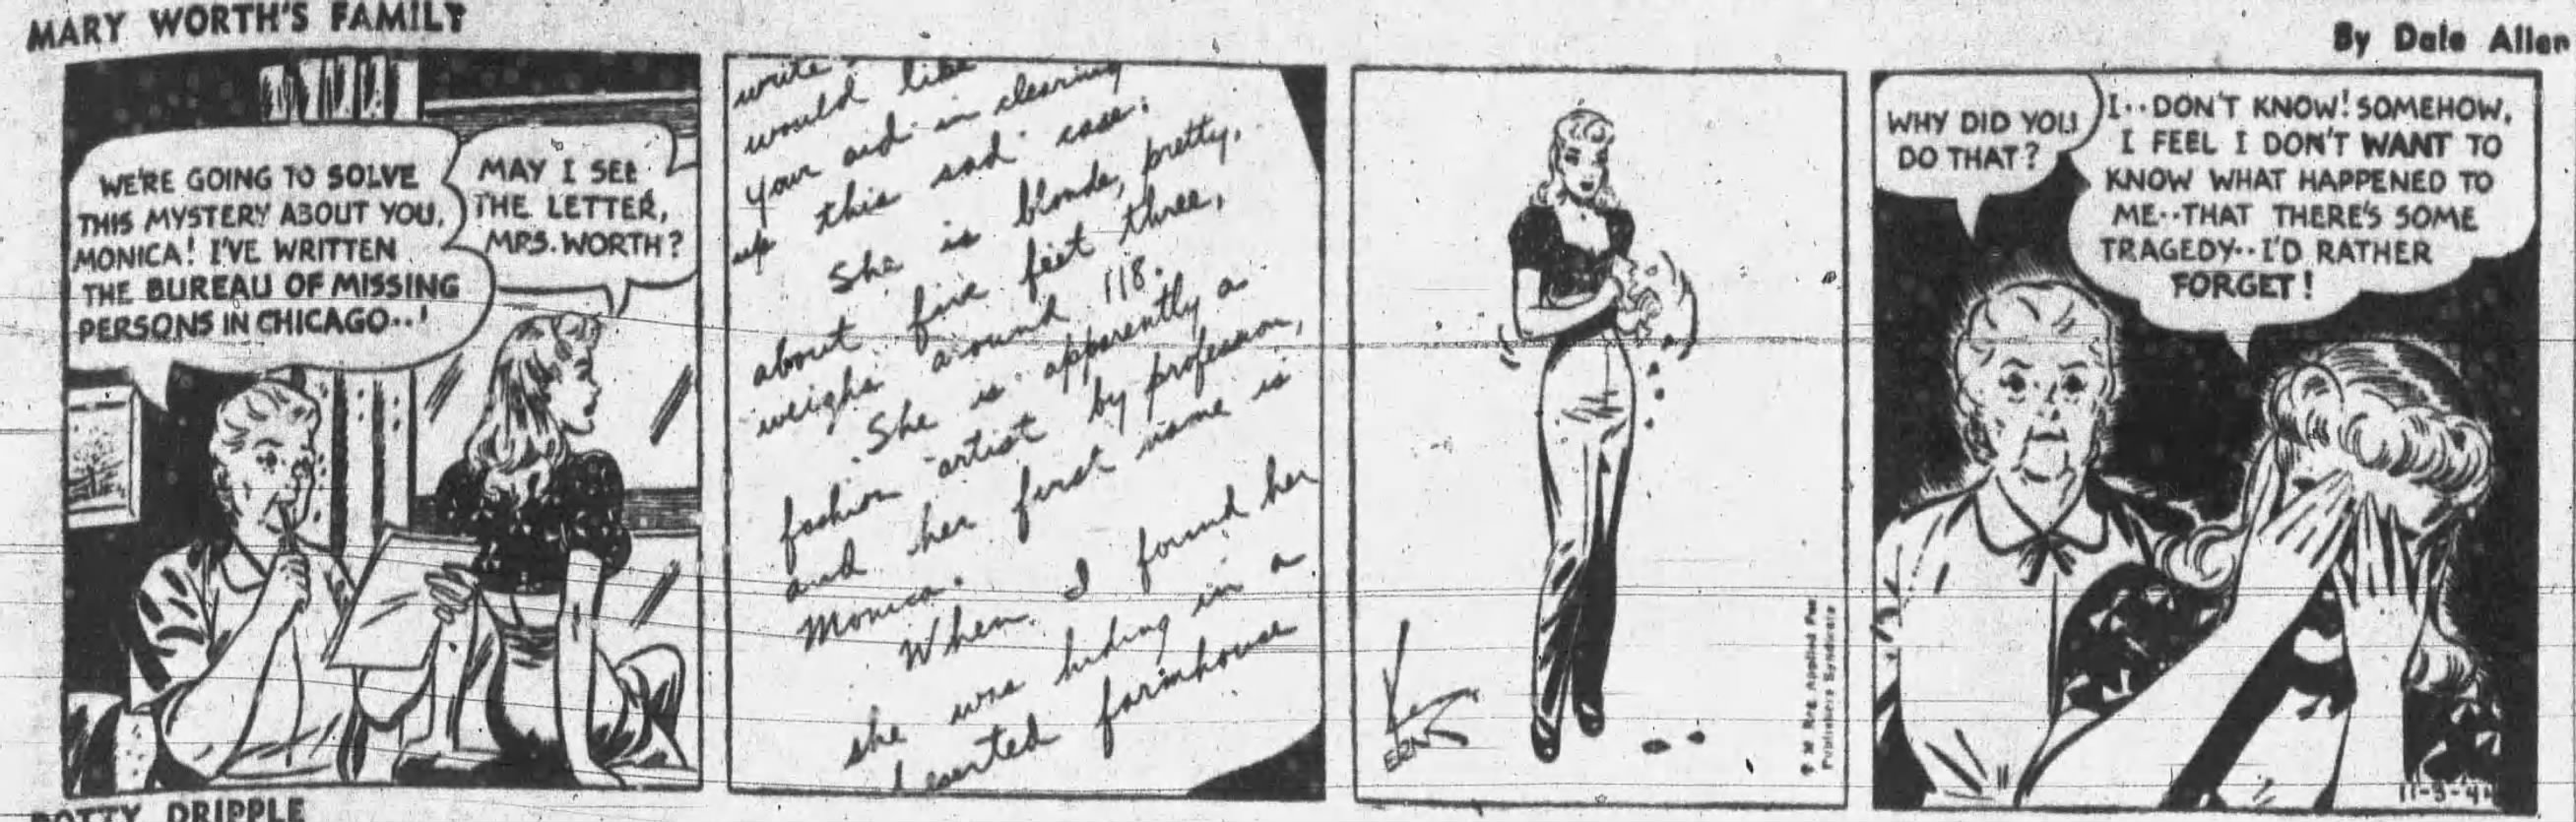 MARY WORTH'S FAMILY
By Dale Allen
WE'RE GOING TO SOLVE
THIS MYSTERY ABOUT YOU,
MONICA! I'VE WRITTEN
THE BUREAU OF MISSING
PERSONS IN CHICAGO..!
MAY I SEE
THE LETTER,
MRS. WORTH?
write
would like
your aid in clearing
up this sad case.
She is blonde, pretty,
about five feet three,
weighs around 118.
She is apparently a
fashion artist by profession,
and her first name is
Monica.
When I found her
she was hiding in a
deserted farmhouse
KEN
ERNST
T M Reg Applied For
Publishers Syndicate
WHY DID YOU
DO THAT?
I..DON'T KNOW! SOMEHOW,
I FEEL I DON'T WANT TO
KNOW WHAT HAPPENED TO
ME..THAT THERE'S SOME
TRAGEDY..I'D RATHER
FORGET!
11-3-44
DRIPPLE